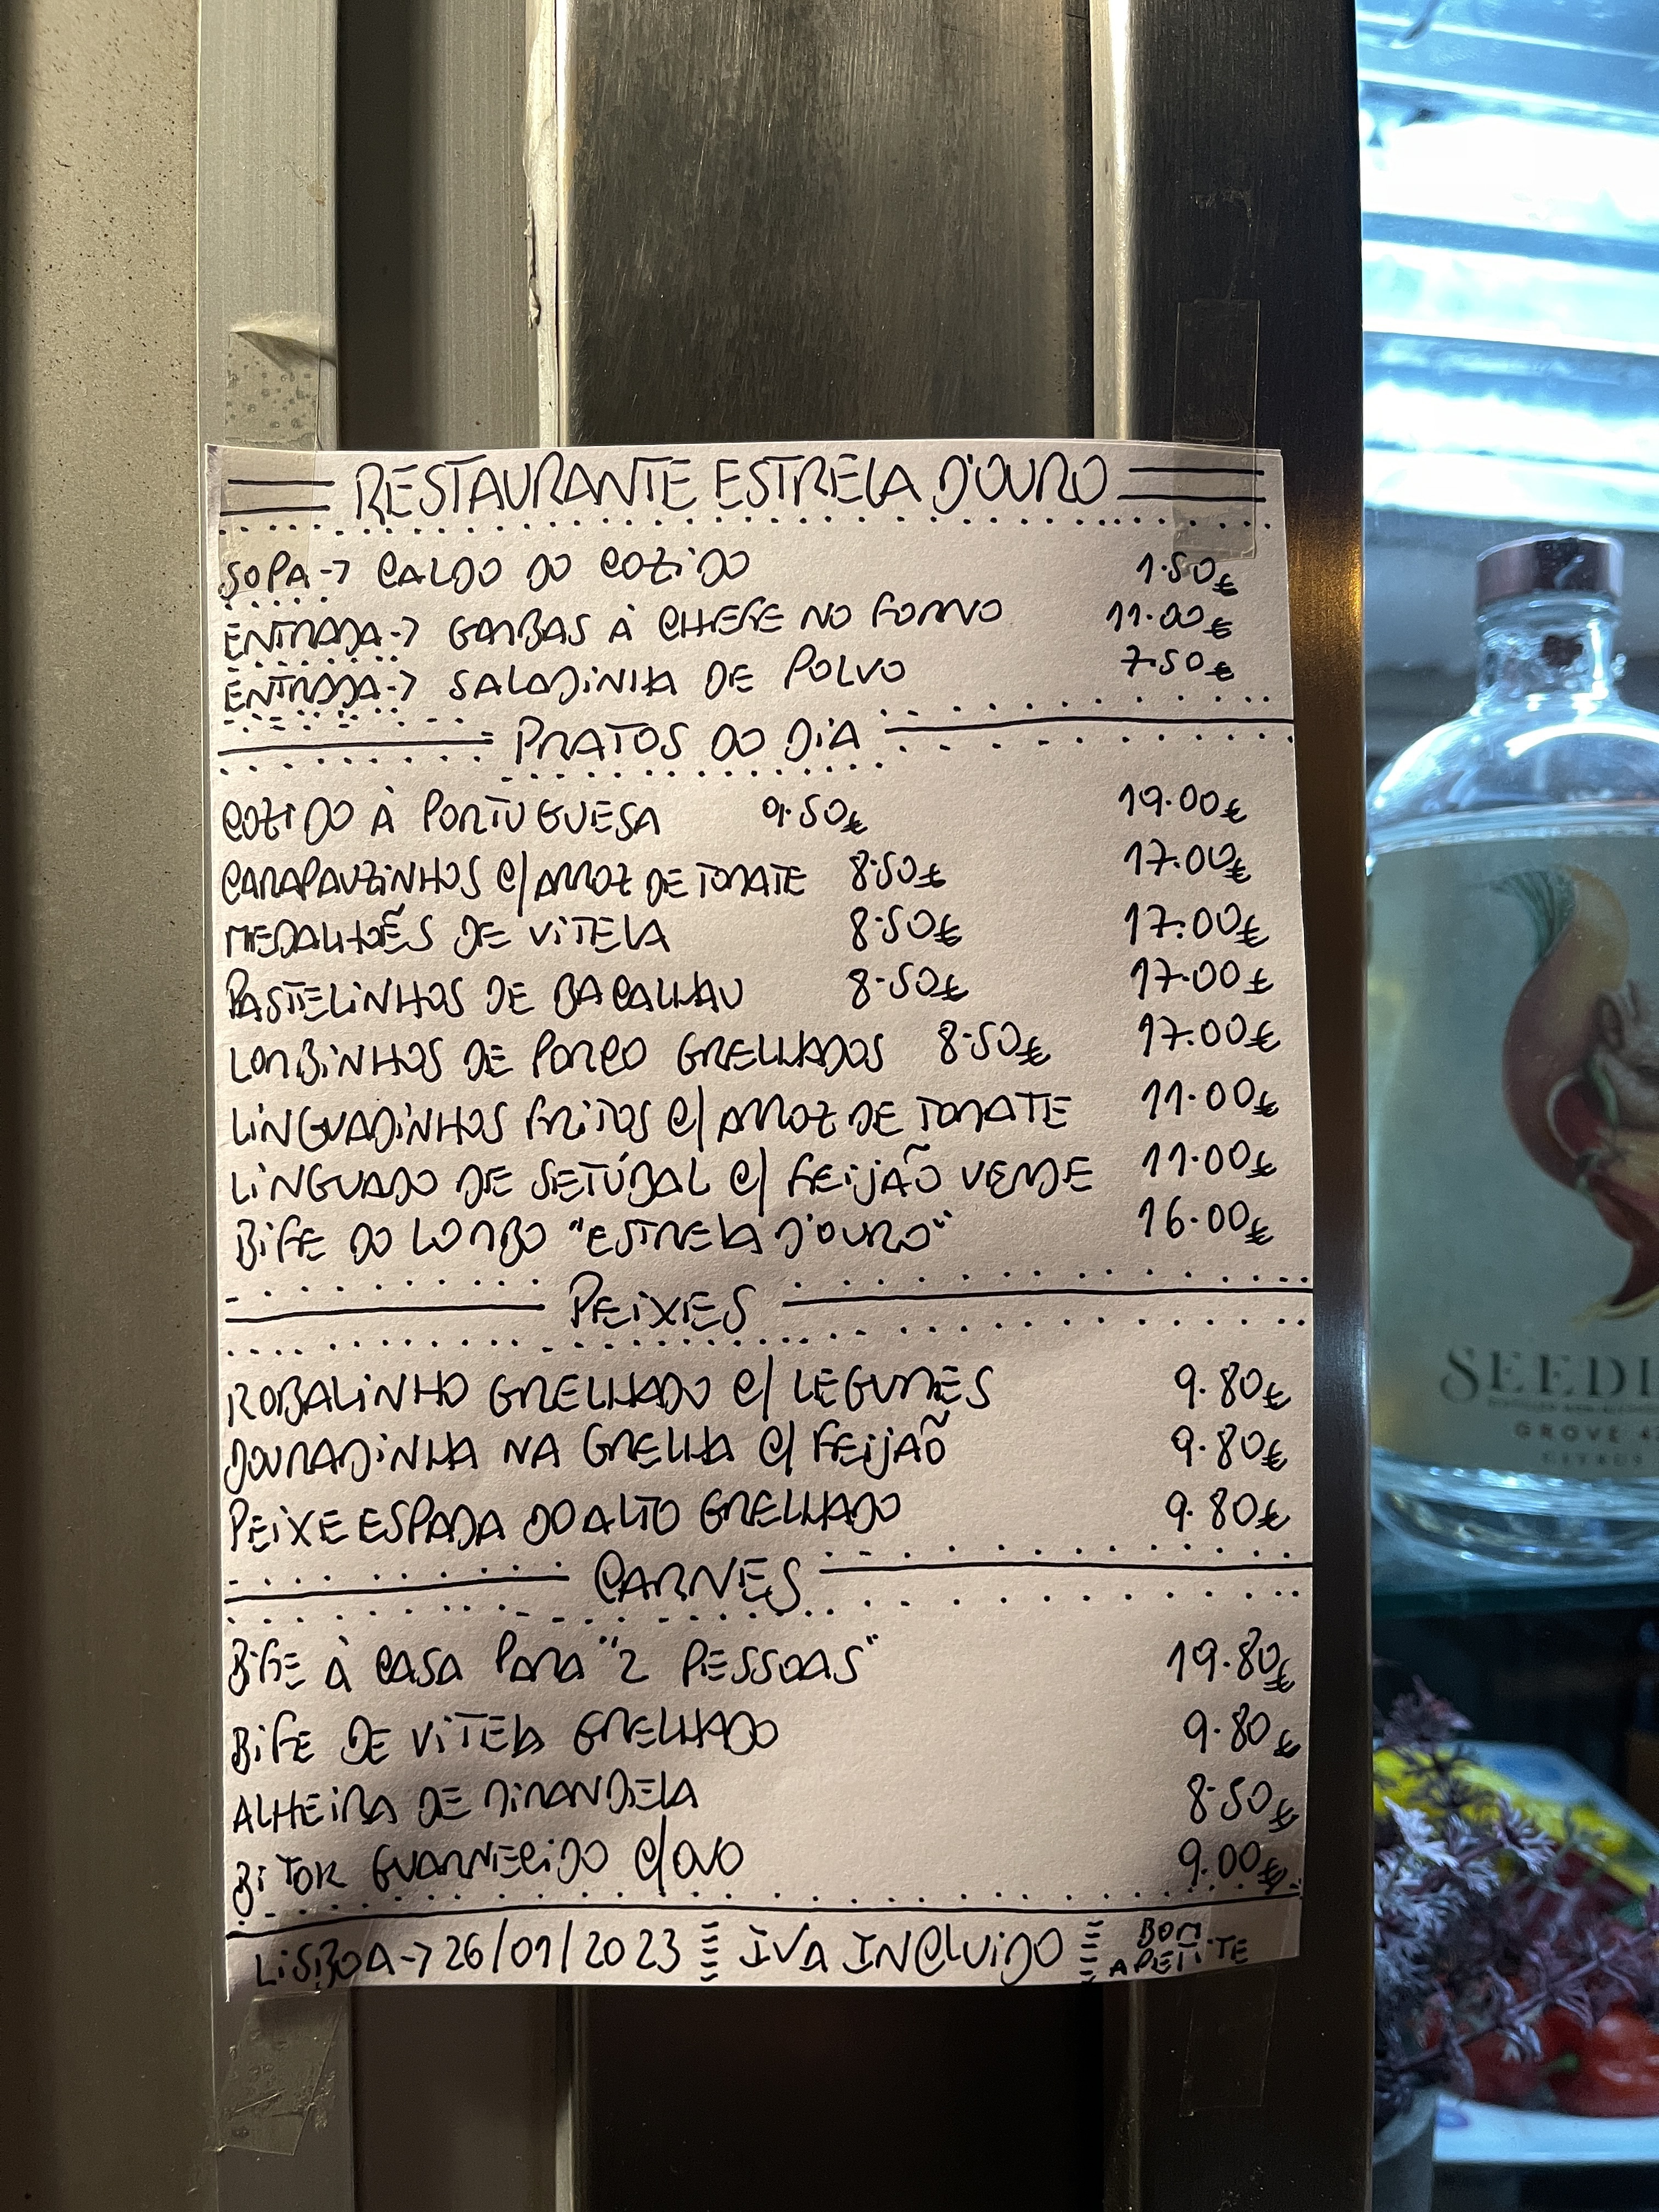 RESTAURANTE ESTRELA D'OURO
SOPA → CALDO DO COZIDO 1.50€
ENTRADA → GAMBAS À CHEFE NO FORNO 11.00€
ENTRADA → SALADINHA DE POLVO 7.50€
PRATOS DO DIA
COZIDO À PORTUGUESA 9.50€ 19.00€
CARAPAUZINHOS C/ARROZ DE TOMATE 8.50€ 17.00€
MEDALHÕES DE VITELA 8.50€ 17.00€
PASTELINHOS DE BACALHAU 8.50€ 17.00€
LOMBINHOS DE PORCO GRELHADOS 8.50€ 17.00€
LINGUADINHOS FRITOS C/ ARROZ DE TOMATE 11.00€
LINGUADO DE SETÚBAL C/ FEIJÃO VERDE 11.00€
BIFE DO LOMBO "ESTRELA D'OURO" 16.00€
PEIXES
ROBALINHO GRELHADO C/ LEGUMES 9.80€
DOURADINHA NA GRELHA C/ FEIJÃO 9.80€
PEIXE ESPADA DO ALTO GRELHADO 9.80€
CARNES
BIFE À CASA PARA "2 PESSOAS" 19.80€
BIFE DE VITELA GRELHADO 9.80€
ALHEIRA DE MIRANDELA 8.50€
BITOK GUARNECIDO C/OVO 9.00€
LISBOA → 26/01/2023 IVA INCLUIDO BOM APETITE
SEEDL
GROVE 42
CITRUS